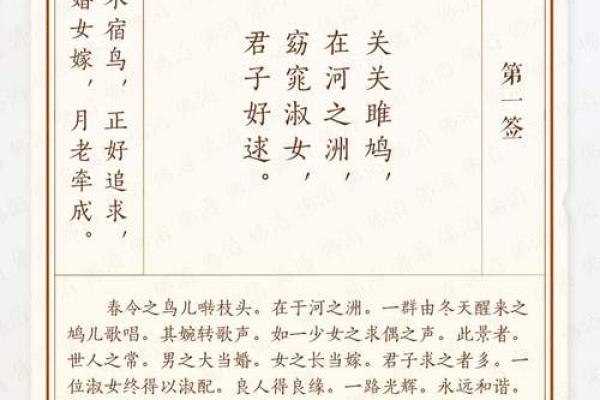 第一签
关关雎鸠，
在河之洲，
窈窕淑女，
君子好逑。
宿鸟，正好追求，
婚女嫁，月老牵成。
春令之鸟儿啭枝头。在于河之洲。一群由冬天醒来之
鸠儿歌唱。其婉转歌声。如一少女之求偶之声。此景者。
世人之常。男之大当婚。女之长当嫁。君子求之者多。一
位淑女终得以淑配。良人得良缘。一路光辉。永远和谐。